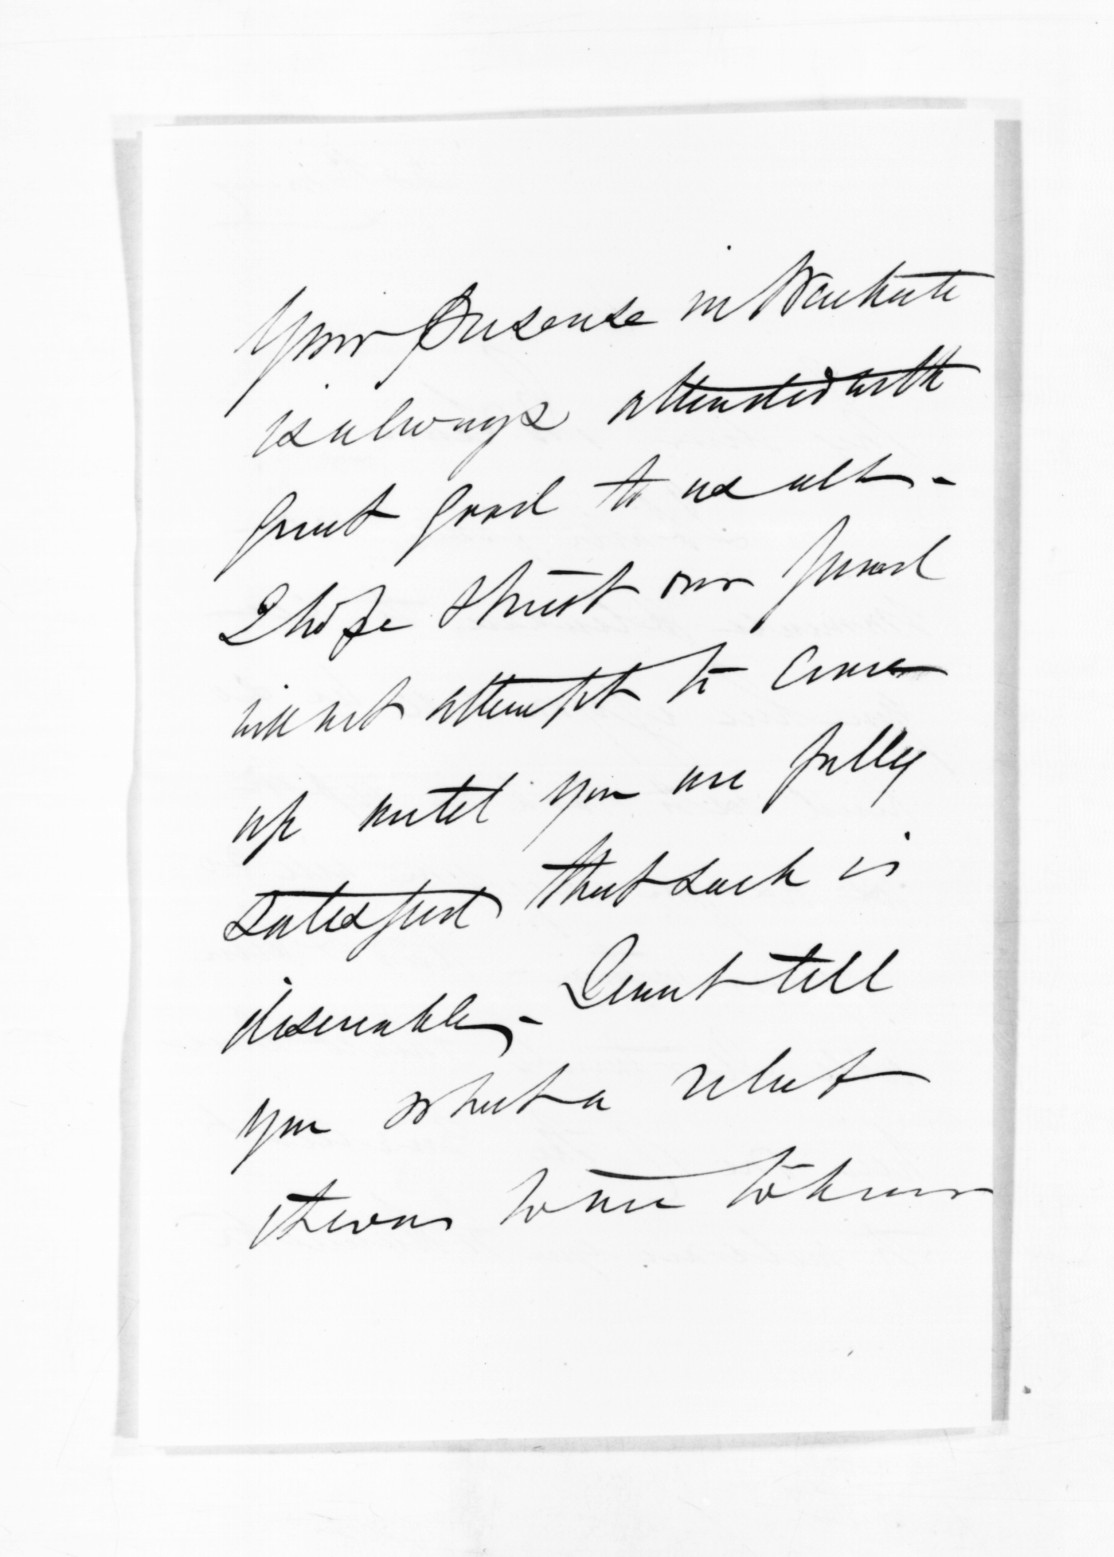 Your Presense in Waikato
is always attended with
great good to us all -
I hope & trust our friend
will not attempt to come
up until you are fully
satisfied that such is
diserable, - I cannot tell
you what a relief
it was to me to know